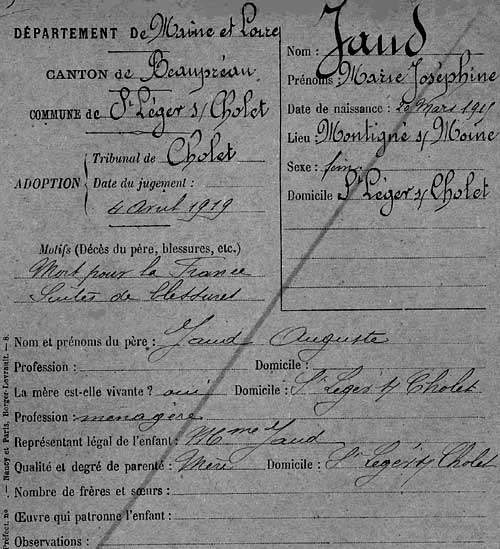 DÉPARTEMENT DE Maine et Loire
CANTON de Beaupréau
COMMUNE de St Léger s/ Cholet
ADOPTION
Tribunal de Cholet
Date du jugement :
4 Avril 1919
Motifs (Décès du père, blessures, etc.)
Mort pour la France
Suites de blessures
Nom : Jaud
Prénoms : Marie Joséphine
Date de naissance : Mars
Lieu Montigné s/ Moine
Sexe : fém.
Domicile St Léger s/ Cholet
Nom et prénoms du père : Jaud Auguste
Profession : Domicile :
La mère est-elle vivante ? oui Domicile : St Léger s/ Cholet
Profession : ménagère
Représentant légal de l'enfant : Mme Jaud
Qualité et degré de parenté : Mère Domicile : St Léger s/ Cholet
Nombre de frères et sœurs :
Œuvre qui patronne l'enfant :
Observations :
Préfect. — Nancy et Paris, Berger-Levrault. — 8.